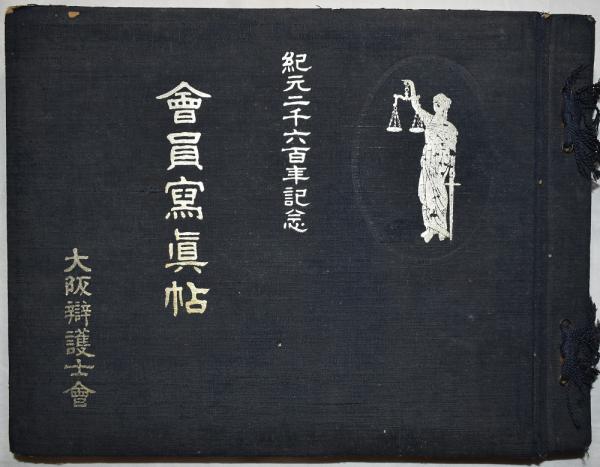 紀元二千六百年記念
會員寫眞帖
大阪辯護士會